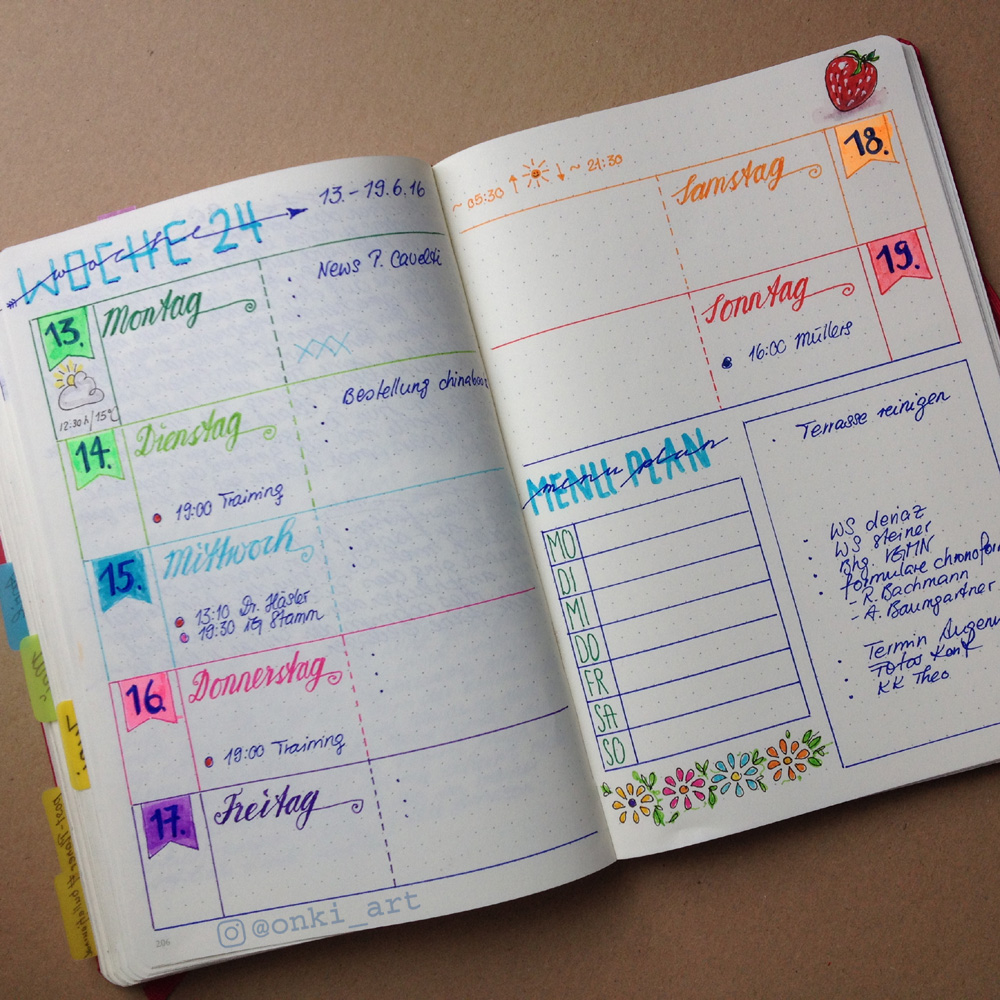 WOCHE 24
woche
13. - 19.6.16
13.
Montag
News P.
12:30 h / 15°C
XXX
14.
Dienstag
Bestellung
19:00 Training
15.
Mittwoch
13:10 Dr. Häsler
19:30 Stamm
16.
Donnerstag
19:00 Training
17.
Freitag
206
@onki_art
~ 05:30 ↑ ↓ ~ 21:30
Samstag
18.
Sonntag
19.
16:00 Müllers
MENU PLAN
menu plan
MO
DI
MI
DO
FR
SA
SO
Terrasse reinigen
- WS deriaz
WS Steiner
Bhg.
Formulare
- R. Bachmann
- A. Baumgartner
Termin
Fotos
KK Theo